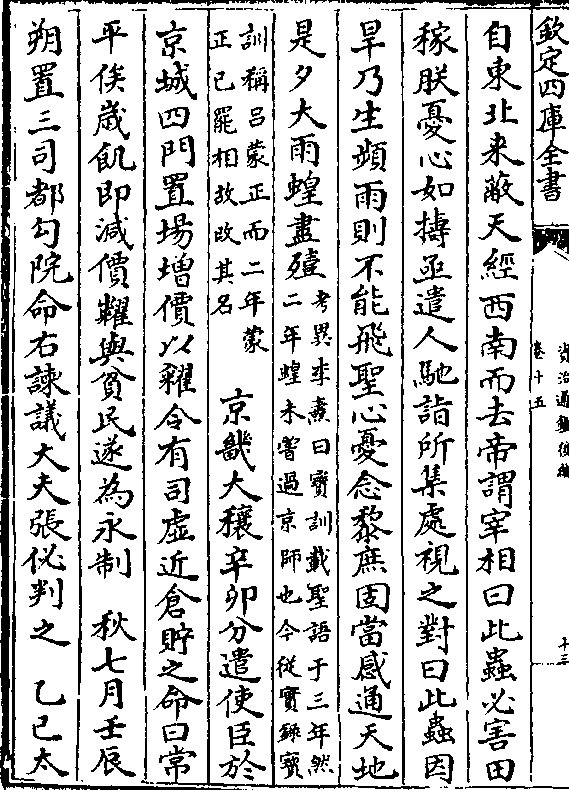 欽定四庫全書
資治通鑑後編
卷十五
十三
自東北來蔽天經西南而去帝謂宰相曰此蟲必害田
稼朕憂心如擣亟遣人馳詣所集處視之對曰此蟲因
旱乃生頻雨則不能飛聖心憂念黎庶固當感通天地
是夕大雨蝗盡殪
考異李燾曰寳訓載聖語于三年然
二年蝗未嘗過京師也今從實錄寳
訓稱吕蒙正而二年蒙
正已罷相故改其名
京畿大穰辛卯分遣使臣於
京城四門置場增價以糴令有司虚近倉貯之命曰常
平俟歲飢即減價糶與貧民遂為永制 秋七月壬辰
朔置三司都勾院命右諫議大夫張佖判之 乙巳太